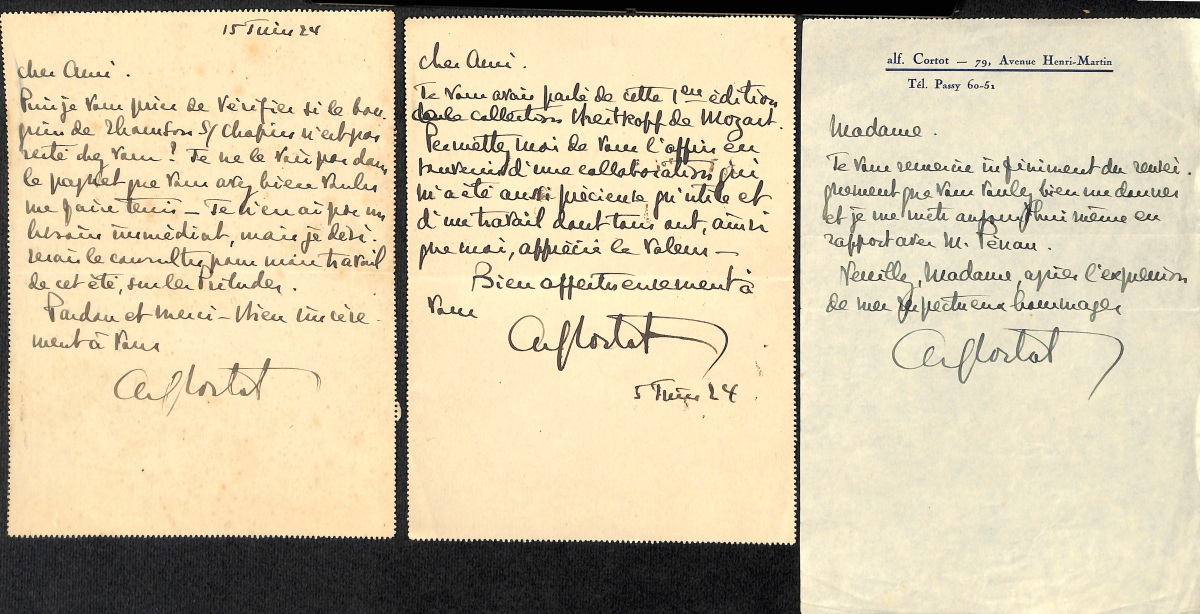 15 Juin 24
cher Ami.
Puis-je vous prier de vérifier si le bou-
quin de Thomson S/ Chopin n'est pas
resté chez vous ? Je ne le vois pas dans
le paquet que vous avez bien voulu
me faire tenir — Je n'en ai pas un
besoin immédiat, mais je dési-
rerais le consulter pour mon travail
de cet été, sur les Préludes.
Pardon et merci — bien sincère-
ment à vous
Alf Cortot
cher Ami.
Je vous avais parlé de cette 1ère édition
de la collection Breitkopf de Mozart.
Permettez moi de vous l'offrir en
souvenir d'une collaboration qui
m'a été aussi précieuse qu'utile et
d'un travail dont tous ont, ainsi
que moi, apprécié la valeur —
Bien affectueusement à
vous
Alf Cortot
5 Juin 24
alf. Cortot — 79, Avenue Henri-Martin
Tél. Passy 60-51
Madame.
Je vous remercie infiniment du rensei-
gnement que vous voulez bien me donner
et je me mets aujourd'hui même en
rapport avec M.
Veuillez, Madame, agréer l'expression
de mes respectueux hommages
Alf Cortot